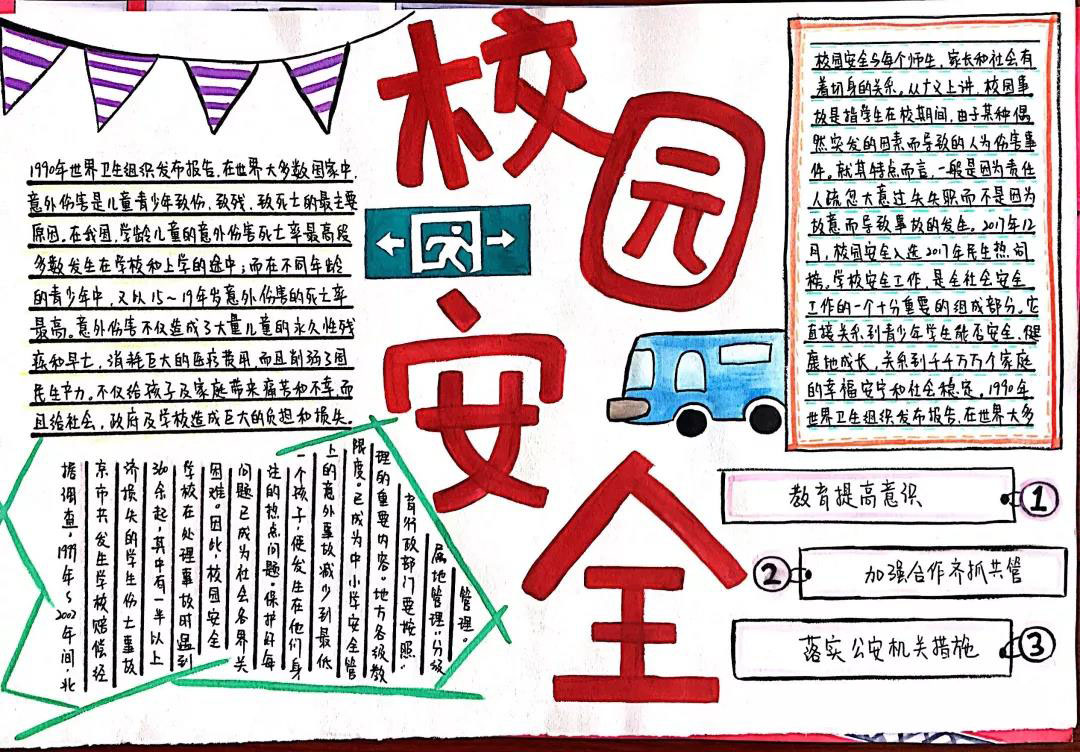 校园安全
1990年世界卫生组织发布报告，在世界大多数国家中，
意外伤害是儿童青少年致伤、致残、致死亡的最主要
原因。在我国，学龄儿童的意外伤害死亡率最高段
多数发生在学校和上学的途中；而在不同年龄
的青少年中，又以15~19年岁意外伤害的死亡率
最高。意外伤害不仅造成了大量儿童的永久性残
疾和早亡，消耗巨大的医疗费用，而且削弱了国
民生产力。不仅给孩子及家庭带来痛苦和不幸，而
且给社会，政府及学校造成巨大的负担和损失。
校园安全与每个师生，家长和社会有
着切身的关系。从广义上讲，校园事
故是指学生在校期间，由于某种偶
然突发的因素而导致的人为伤害事
件。就其特点而言，一般是因为责任
人疏忽大意过失失职而不是因为
故意而导致事故的发生。2017年12
月，校园安全入选2017年民生热词
榜。学校安全工作，是全社会安全
工作的一个十分重要的组成部分。它
直接关系到青少年学生能否安全、健
康地成长，关系到千千万万个家庭
的幸福安宁和社会稳定。1990年
世界卫生组织发布报告，在世界大多
据调查，1999年~2002年间，北
京市共发生学校赔偿经
济损失的学生伤亡事故
360余起，其中有一半以上
学校在处理事故时遇到
困难。因此，校园安全
问题已成为社会各界关
注的热点问题。保护好每
一个孩子，使发生在他们身
上的意外事故减少到最低
限度。已成为中小学安全管
理的重要内容。地方各级教
育行政部门要按照"
属地管理""分级
管理。
教育提高意识
1
2
加强合作齐抓共管
落实公安机关措施
3